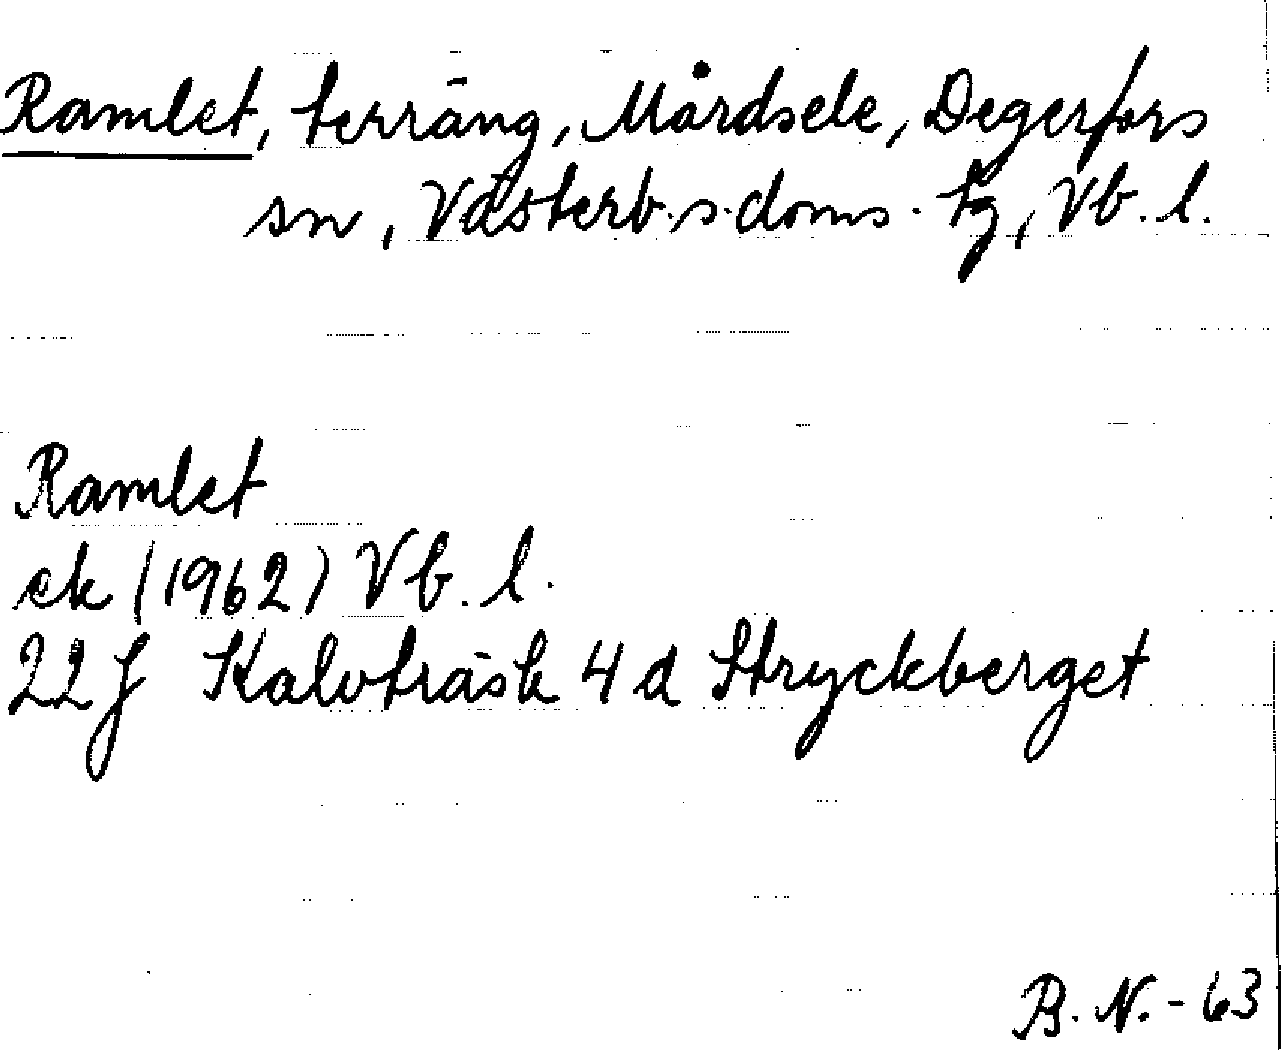 Ramlet, terräng, Mårdsele, Degerfors
sn, Västerb.s.doms. tg, Vb. l.
Ramlet
ek (1962) Vb. l.
22 J Kalvträsk 4 d Stryckberget
B. N. - 63